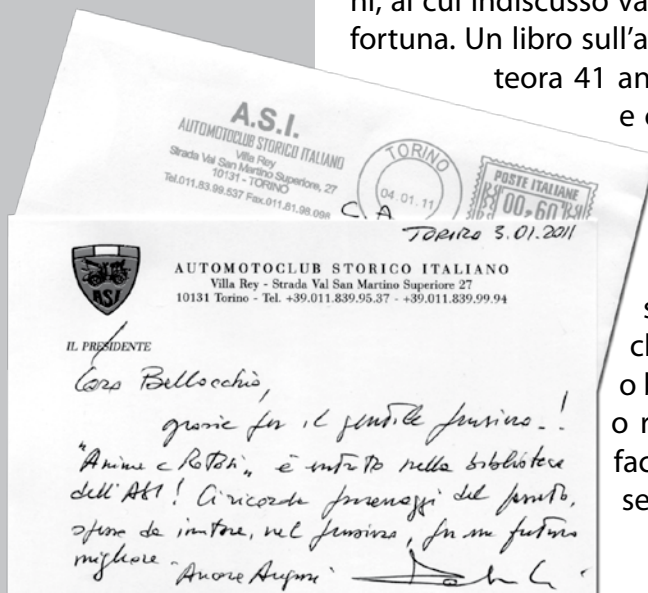 ni, al cui indiscusso va
fortuna. Un libro sull'a
teora 41 an
e
A.S.I.
AUTOMOTOCLUB STORICO ITALIANO
Villa Rey
Strada Val San Martino Superiore, 27
10131 - TORINO
Tel.011.83.99.537 Fax.011.81.98.098
TORINO
04.01.11
POSTE ITALIANE
00,60
C A
TORINO 3.01.2011
ASI
AUTOMOTOCLUB STORICO ITALIANO
Villa Rey - Strada Val San Martino Superiore 27
10131 Torino - Tel. +39.011.839.95.37 - +39.011.839.99.94
IL PRESIDENTE
Caro Bellocchio,
grazie per il gentile pensiero - !
"Anime e Rotori" è entrato nella biblioteca
dell'ASI! Ci ricorda personaggi del passato,
da imitare, nel pensiero, per un futuro
migliore -
Ancora Auguri
s
cl
o
o r
fac
se